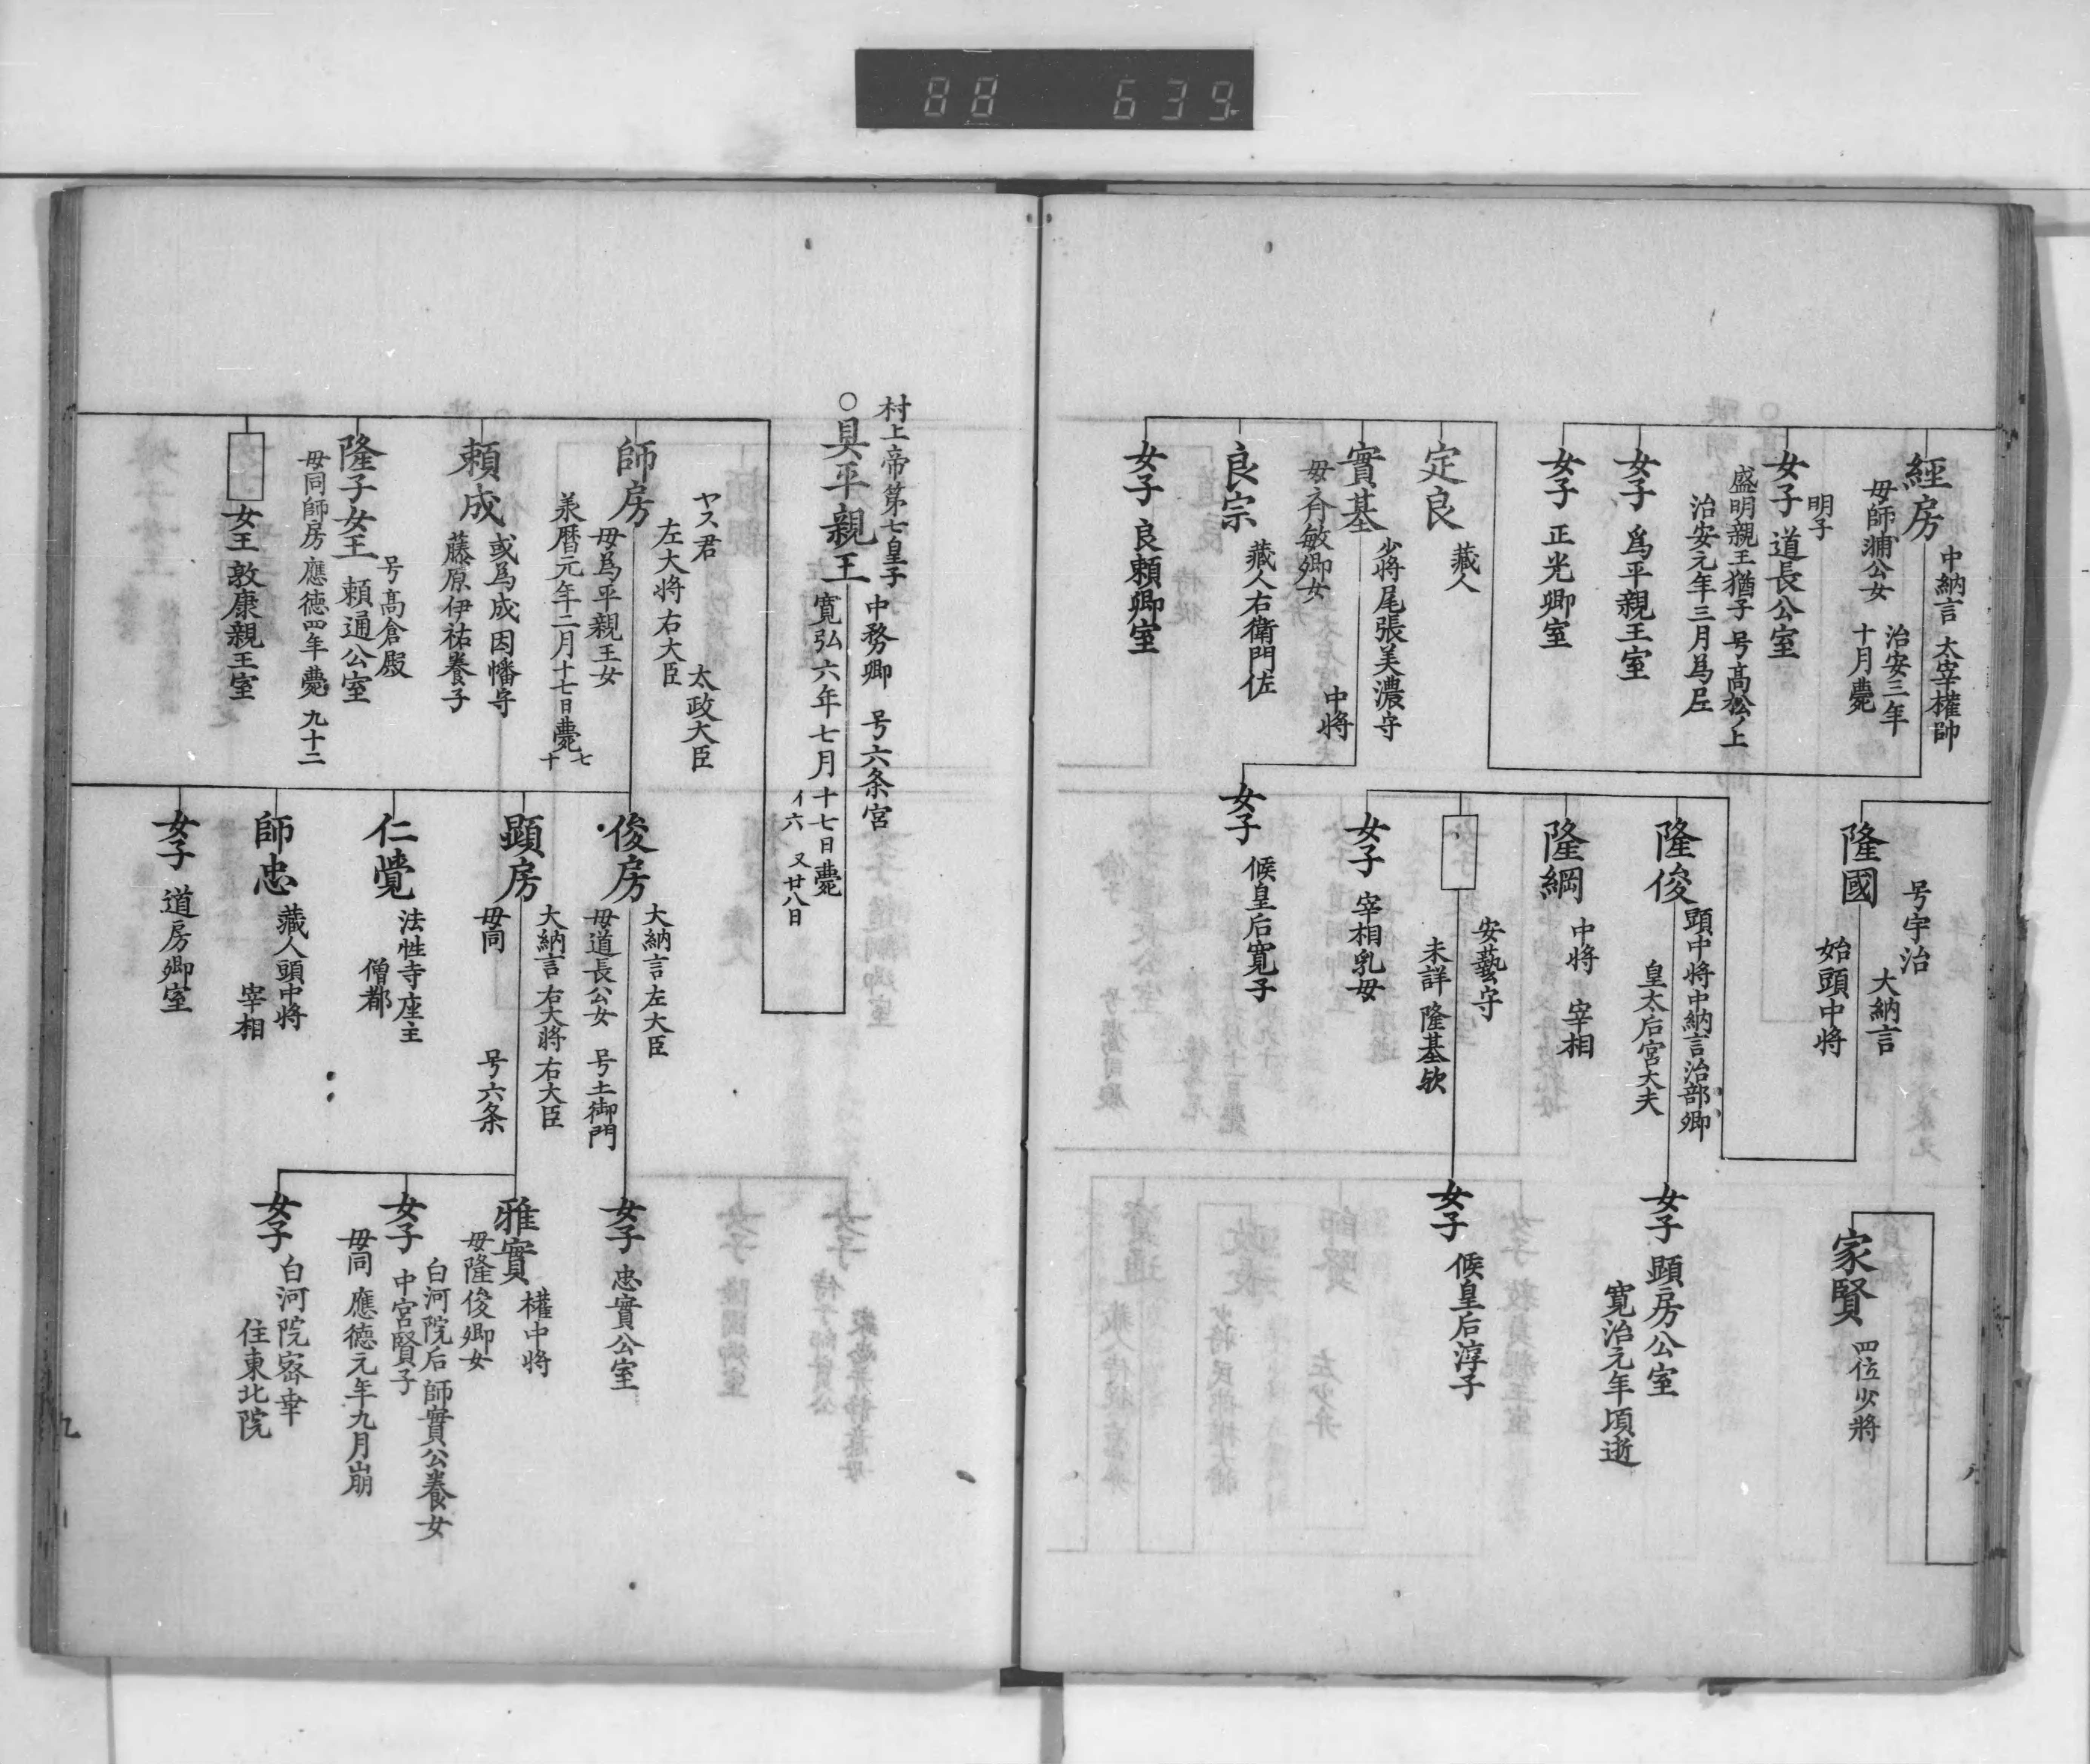 88 639
經房
中納言 太宰權帥
母師浦公女 治安三年
十月薨
明子
女子 道長公室
盛明親王猶子 号髙松ノ上
治安元年三月為尼
女子 爲平親王室
女子 正光卿室
定良 藏人
實基 少將尾張美濃守
中将
良宗 藏人右衛門佐
女子 良頼卿室
隆國
号宇治
大納言
始頭中将
隆俊 頭中将中納言治部卿
皇太后宮大夫
隆綱 中将 宰相
安藝守
未詳 隆基欤
女子 宰相乳母
女子 候皇后寛子
家賢 四位少將
女子 顕房公室
寛治元年頃逝
女子 候皇后淳子
村上帝第七皇子 中務卿 号六条宮
○具平親王 寛弘六年七月十七日薨
イ六 又廿八日
ヤス君 太政大臣
左大将 右大臣
師房
母爲平親王女
承暦元年二月十七日薨 七十
頼成 或爲成 因幡守
藤原伊祐養子
号髙倉殿
隆子女王 頼通公室
母同師房 應徳四年薨 九十二
女王 敦康親王室
俊房 大納言左大臣
母道長公女 号土御門
顕房 大納言右大将 右大臣
母同 号六条
仁覺 法性寺座主
僧都
師忠 藏人頭中将
宰相
女子 道房卿室
女子 忠實公室
雅實 權中将
母隆俊卿女
女子 白河院后 師實公養女
中宮賢子
母同 應徳元年九月崩
女子 白河院密幸
住東北院
九